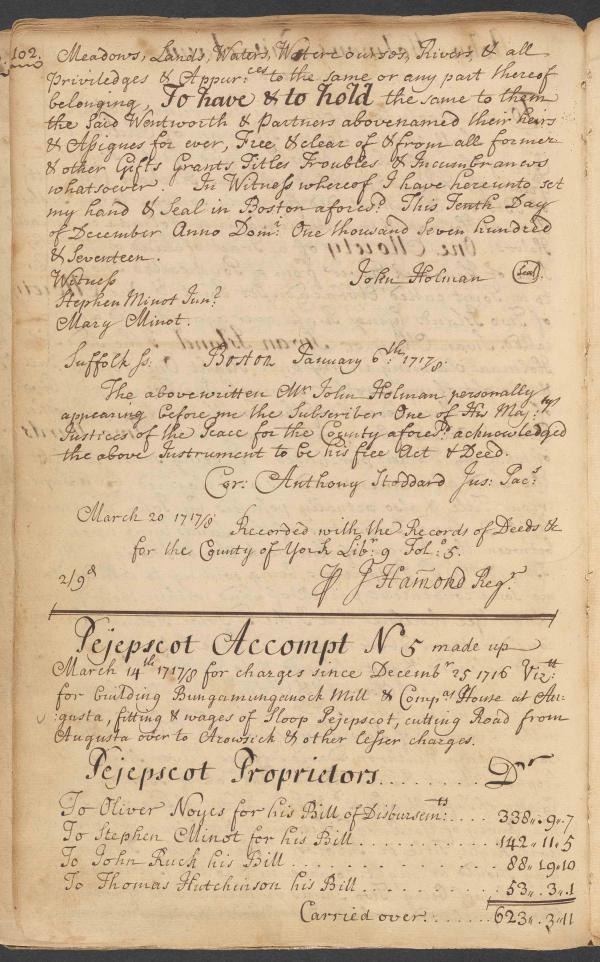 102. Meadows, Lands, Waters, Watercourses, Rivers, & all
Priviledges & Appur:ces to the same or any part thereof
belonging, To have & to hold the same to them
the Said Wentworth & Partners abovenamed their heirs
& Assignes for ever, Free & clear of & from all former
& other Gifts Grants Titles Troubles & Incumbrances
whatsoever. In Witness whereof I have hereunto set
my hand & Seal in Boston afores:d This Tenth Day
of December Anno Dom:i One thousand Seven hundred
& Seventeen.
Witness John Holman (Seal)
Stephen Minot Jun:r
Mary Minot.
Suffolk ss: Boston January 6:th 1717/8:
The abovewritten Mr John Holman personally
appearing before me the Subscriber One of His Maj:tys
Justices of the Peace for the County afores:d acknowledged
the above Instrument to be his free Act & Deed.
Cor: Anthony Stoddard Jus: Pac:s
March 20 1717/8: Recorded with the Records of Deeds &
for the County of York Lib:r 9 Fol:o 5.
2/9d P J Hamond Reg:r
Pejepscot Accompt No 5 made up
March 14:th 1717/8 for charges since Decemb:r 25 1716 Viz:tt
for building Bungamunganock Mill & Comp:as House at Au-
:gusta, fitting & wages of Sloop Pejepscot, cutting Road from
Augusta over to Arowsick & other lesser charges.
Pejepscot Proprietors........ Dr
To Oliver Noyes for his Bill of Disbursem:ts.... 338,,.9,.7
To Stephen Minot for his Bill........... 142,,11,.5
To John Ruck his Bill............... 88,,19,,10
To Thomas Hutchinson his Bill......... 53,,.3,.1
Carried over...... 623,,.3,,11